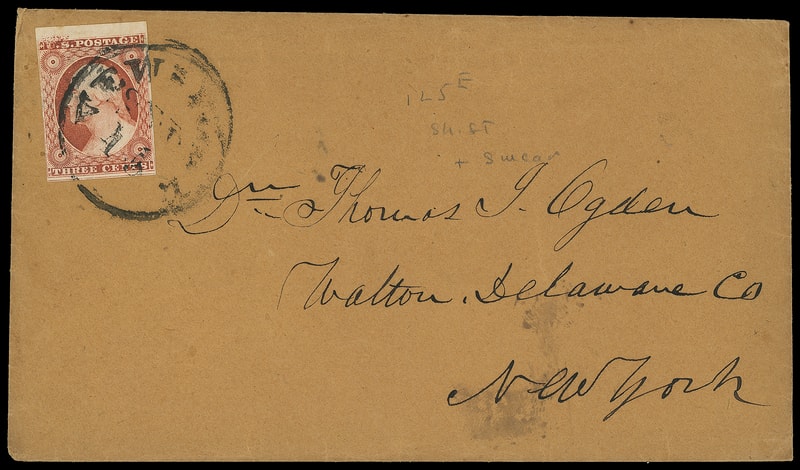 U.S. POSTAGE
THREE CENTS
1L5E
Sh. ST
+ Smear
Dr. Thomas J. Ogden
Walton. Delaware Co
New York